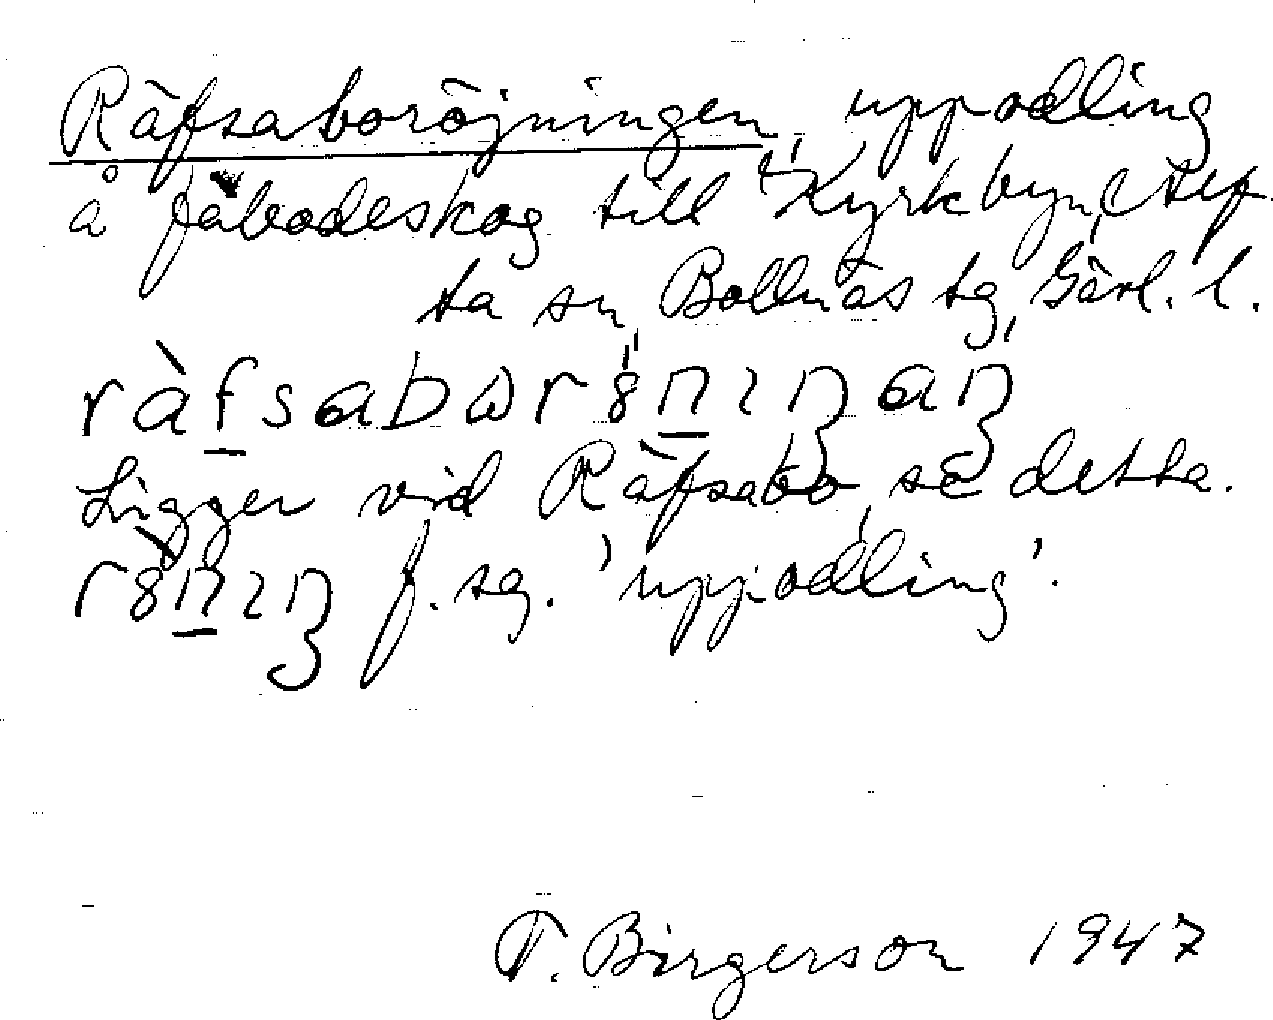 Räfsaboröjningen, uppodling
å fäbodeskog till Kyrkbyn, Alf-
ta sn, Bollnäs tg, Gävl. l.
Ligger vid Räfsabo, se detta.
f. sg. 'uppodling'.
T. Birgerson 1947